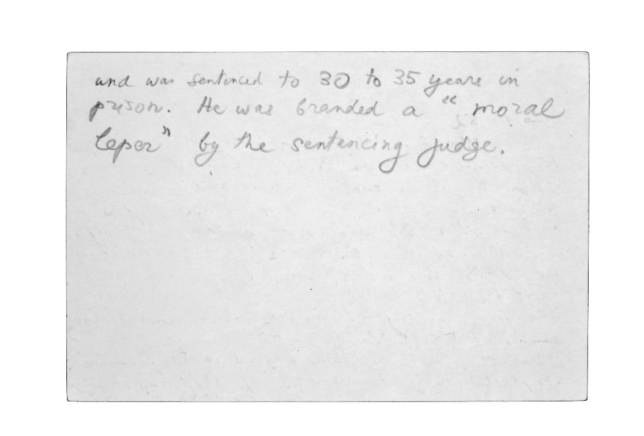 and was sentenced to 30 to 35 years in
prison. He was branded a "moral
leper" by the sentencing judge.